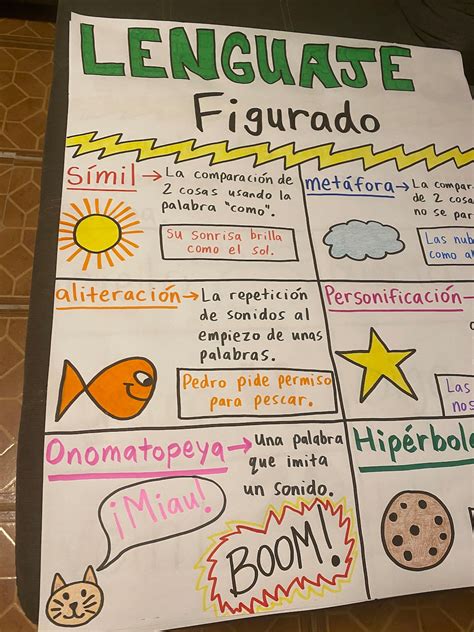 LENGUAJE
Figurado
Símil → La comparación de
2 cosas usando la
palabra "como".
Su sonrisa brilla
como el sol.
metáfora → La compar
de 2 cosa
no se par
Las nub
como al
aliteración → La repetición
de sonidos al
empiezo de unas
palabras.
Pedro pide permiso
para pescar.
Personificación
Las
nos
Onomatopeya → Una palabra
que imita
un sonido.
¡Miau!
BOOM!
Hipérbole